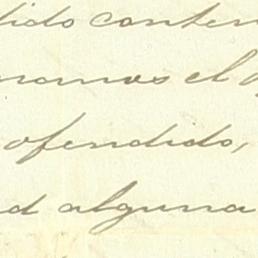 dido conten
namos el
ofendido,
d alguna